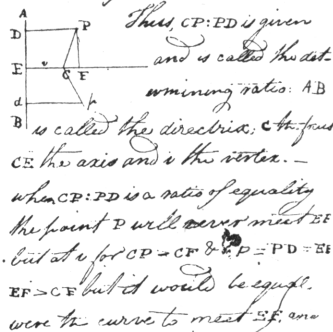 A
D P
E v C F
d p
B
Thus, CP:PD is given
and is called the det-
ermining ratio: AB
is called the directrix, C the focus
CE the axis and v the vertex.—
when CP:PD is a ratio of equality
the point P will never meet EF
but at v for CP = CF & CP = PD = EF
EF > CF but it would be equal
were the curve to meet EF, and